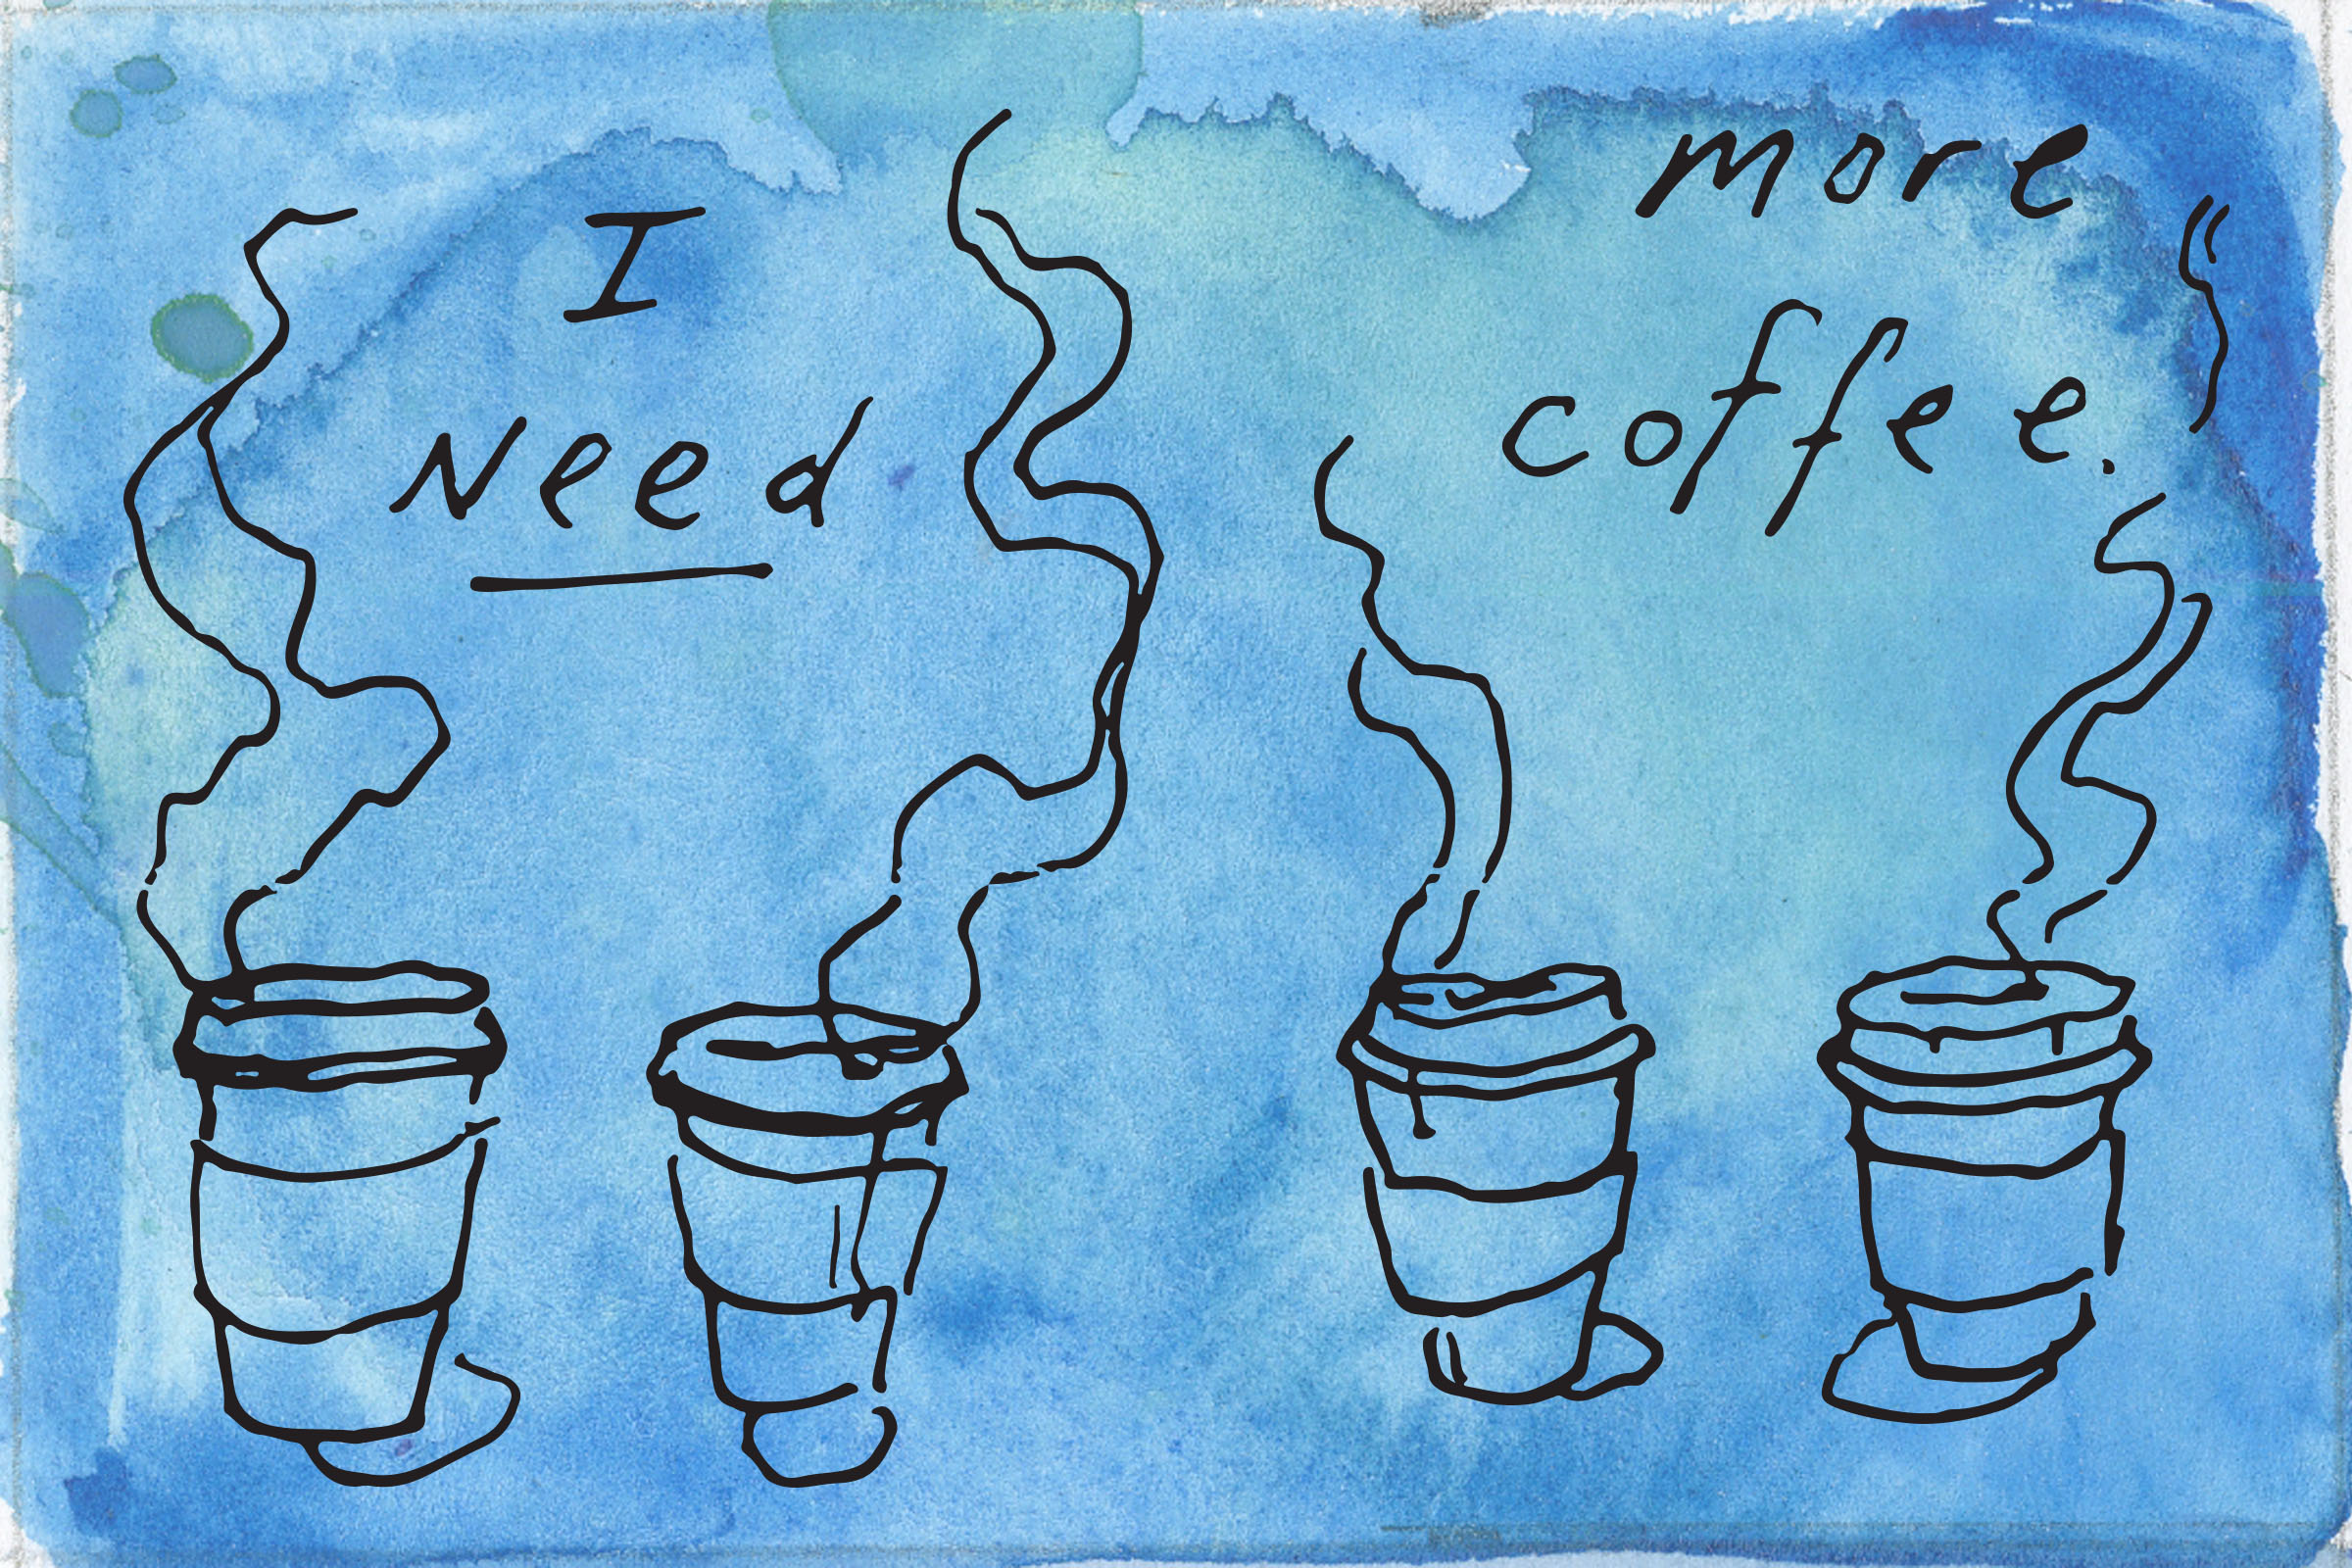 I
Need
more
coffee.